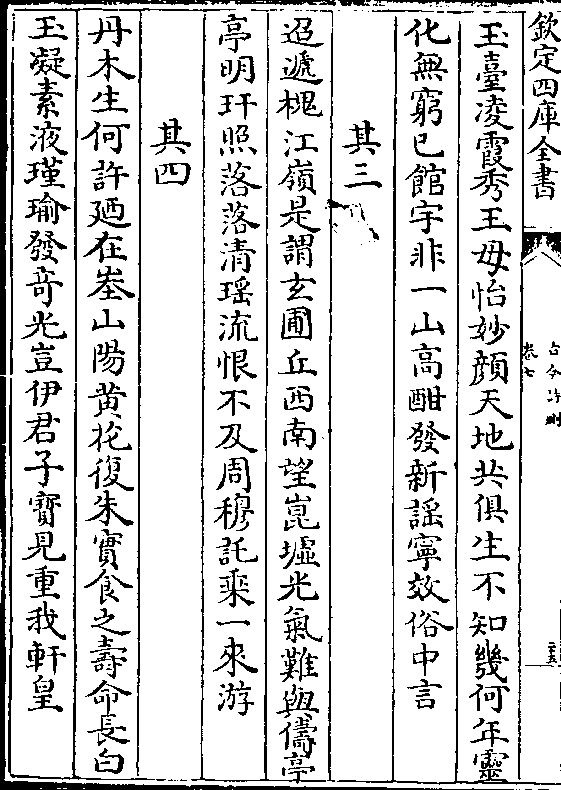 欽定四庫全書
古今詩刪
卷七
二十五
玉臺凌霞秀王母怡妙顔天地共俱生不知幾何年靈
化無窮已館宇非一山高酣發新謡寧效俗中言
其三
迢遞槐江嶺是謂玄圃丘西南望崑墟光氣難與儔亭
亭明玕照落落清瑶流恨不及周穆託乗一來游
其四
丹木生何許廼在峚山陽黄花復朱實食之壽命長白
玉凝素液瑾瑜發竒光豈伊君子寳見重我軒皇